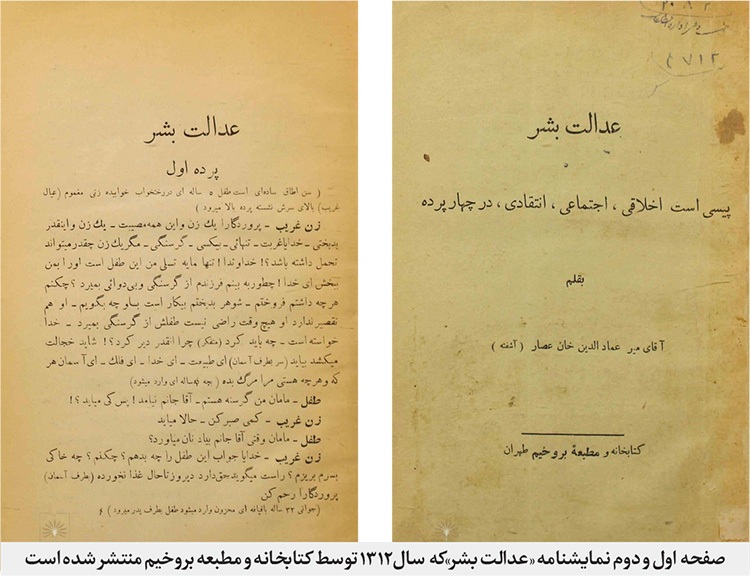 عدالت بشر
پیسی است اخلاقی ، اجتماعی ، انتقادی ، در چهار پرده
بقلم
آقای میر عماد الدین خان عصار ( آشفته )
کتابخانه و مطبعهٔ بروخیم طهران
۴۷۱۲
عدالت بشر
پرده اول
( سن اطاق ساده‌ای است طفل ۵ ساله ای در رختخواب خوابیده زنی مغموم (عیال
غریب) بالای سرش نشسته پرده بالا میرود )
زن غریب - پروردگارا یك زن و این همه مصیبت - یك زن و اینقدر
بدبختی - خدایا غربت - تنهائی - بیکسی - گرسنگی - مگر یك زن چقدر میتواند
تحمل داشته باشد؟! خداوندا! تنها مایه تسلی من این طفل است او را بمن
ببخش ای خدا ! چطور به بینم فرزندم از گرسنگی و بی دوائی بمیرد ؟ چکنم
هرچه داشتم فروختم - شوهر بدبختم بیکار است باو چه بگویم - او هم
تقصیر ندارد او هیچ وقت راضی نیست طفلش از گرسنگی بمیرد - خدا
خواسته است - چه باید کرد (متفکر) چرا انقدر دیر کرد؟! شاید خجالت
میکشد بیاید (سر بطرف آسمان) ای طبیعت - ای خدا - ای فلك - ای آسمان هر
که و هرچه هستی مرا مرگ بده ( بچه ساله ای وارد میشود)
طفل - مامان من گرسنه هستم - آقا جانم نیامد ! پس کی میاید ؟!
زن غریب - کمی صبر کن - حالا میاید
طفل - مامان وقتی آقا جانم بیاد نان میاورد؟
زن غریب - خدایا جواب این طفل را چه بدهم؟ چکنم ؟ چه خاکی
بسرم بریزم ؟ راست میگوید حق دارد دیروز تا حال غذا نخورده (بطرف آسمان)
پروردگارا رحم کن
(جوانی ۳۲ ساله باقیافه ای محزون وارد میشود طفل بطرف پدر میرود )
صفحه اول و دوم نمایشنامه «عدالت بشر» که سال ۱۳۱۲ توسط کتابخانه و مطبعه بروخیم منتشر شده است